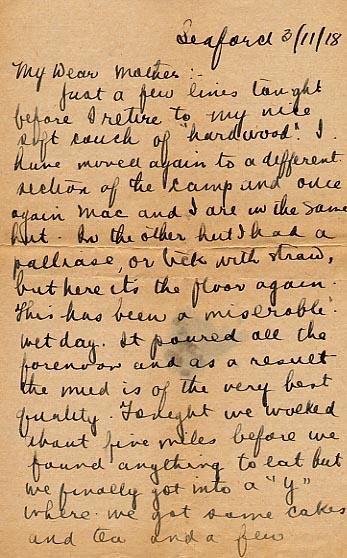 Seaford 3/11/18
My Dear Mother:-
Just a few lines tonight
before I retire to my nice
soft couch of "hardwood". I
have moved again to a different
section of the camp and once
again Mac and I are in the same
hut. In the other hut I had a
palliase, or tick with straw,
but here its the floor again.
This has been a miserable
wet day. It poured all the
forenoon and as a result
the mud is of the very best
quality. Tonight we walked
about five miles before we
found anything to eat but
we finally got into a "Y"
where we got some cakes
and tea and a few